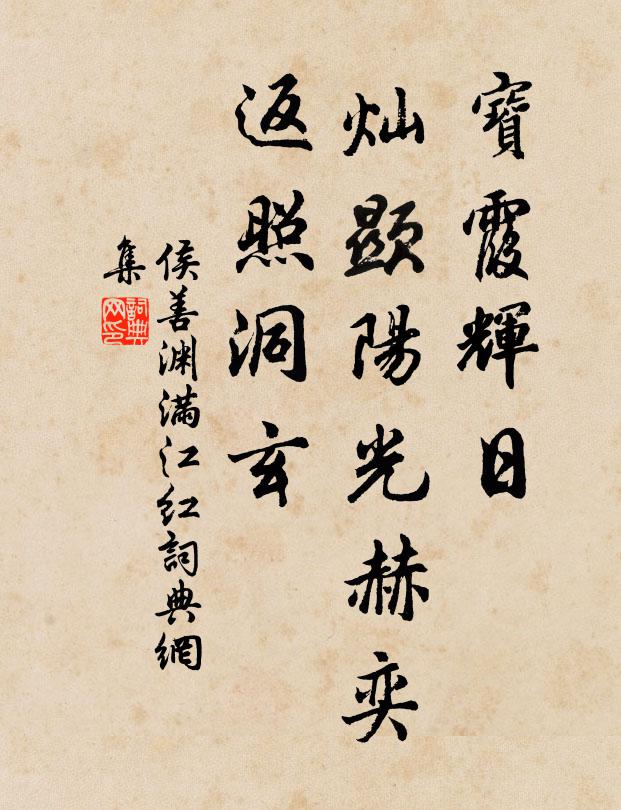 寶霞輝日
灿顯陽光赫奕
返照洞玄
侯善渊满江红詞典網
集
詞典
网印